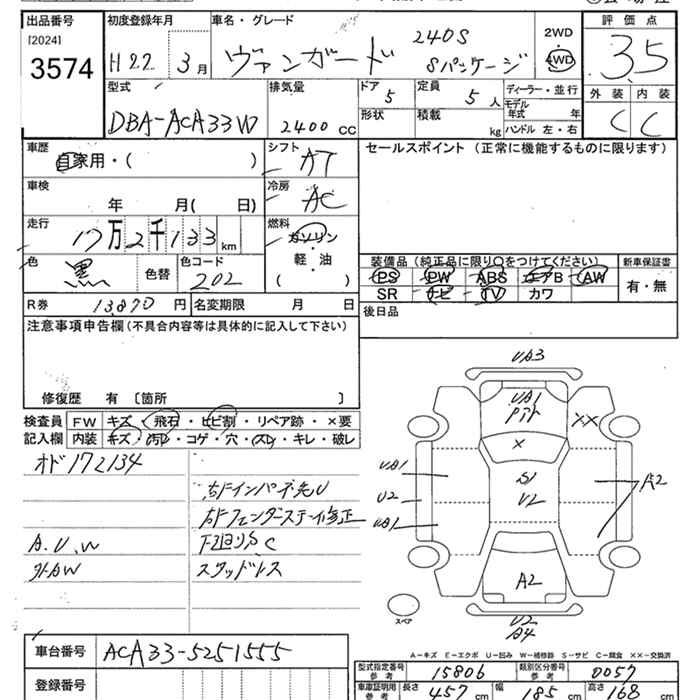 出品番号 初度登録年月 車名・グレード 評価点
[2024]
3574
H22 3月 ヴァンガード 240S Sパッケージ 2WD 4WD 3.5
型式 排気量 ドア 5 定員 5人 ディーラー・並行 外装 内装
DBA-ACA33W 2400cc 形状 積載 kg モデル年式 年 C C
ハンドル 左・右
車歴 自家用・( ) シフト AT セールスポイント (正常に機能するものに限ります)
車検 年 月( 日) 冷房 AC
走行 17万2千133km 燃料 ガソリン・軽・油 ( )
色 黒 色替 色コード 202
装備品 (純正品に限り○をつけてください) 新車保証書
PS PW ABS エアB AW 有・無
SR ナビ TV カワ
R券 13,870円 名変期限 月 日 後日品
注意事項申告欄 (不具合内容等は具体的に記入して下さい)
修復歴 有 〔箇所 〕
検査員 記入欄
FW キズ・飛石・ヒビ割・リペア跡・×要
内装 キズ・汚レ・コゲ・穴・スレ・キレ・破レ
オド172134
右Fインパネ先U
右Fフェンダーステー修正
A.U.W 下廻りS、C
外AW スタッドレス
UA3
UA1
××
×
UA1
U2
UA1
S1
U2
A2
A2
U2
A4
スペア
A-キズ E-エクボ U-凹み W-補修跡 S-サビ C-腐食 ××-交換済
車台番号 ACA33-5251555
登録番号
型式指定番号 参考 15806 類別区分番号 参考 0057
車庫証明用 参考 長さ 457cm 幅 185cm 高さ 168cm